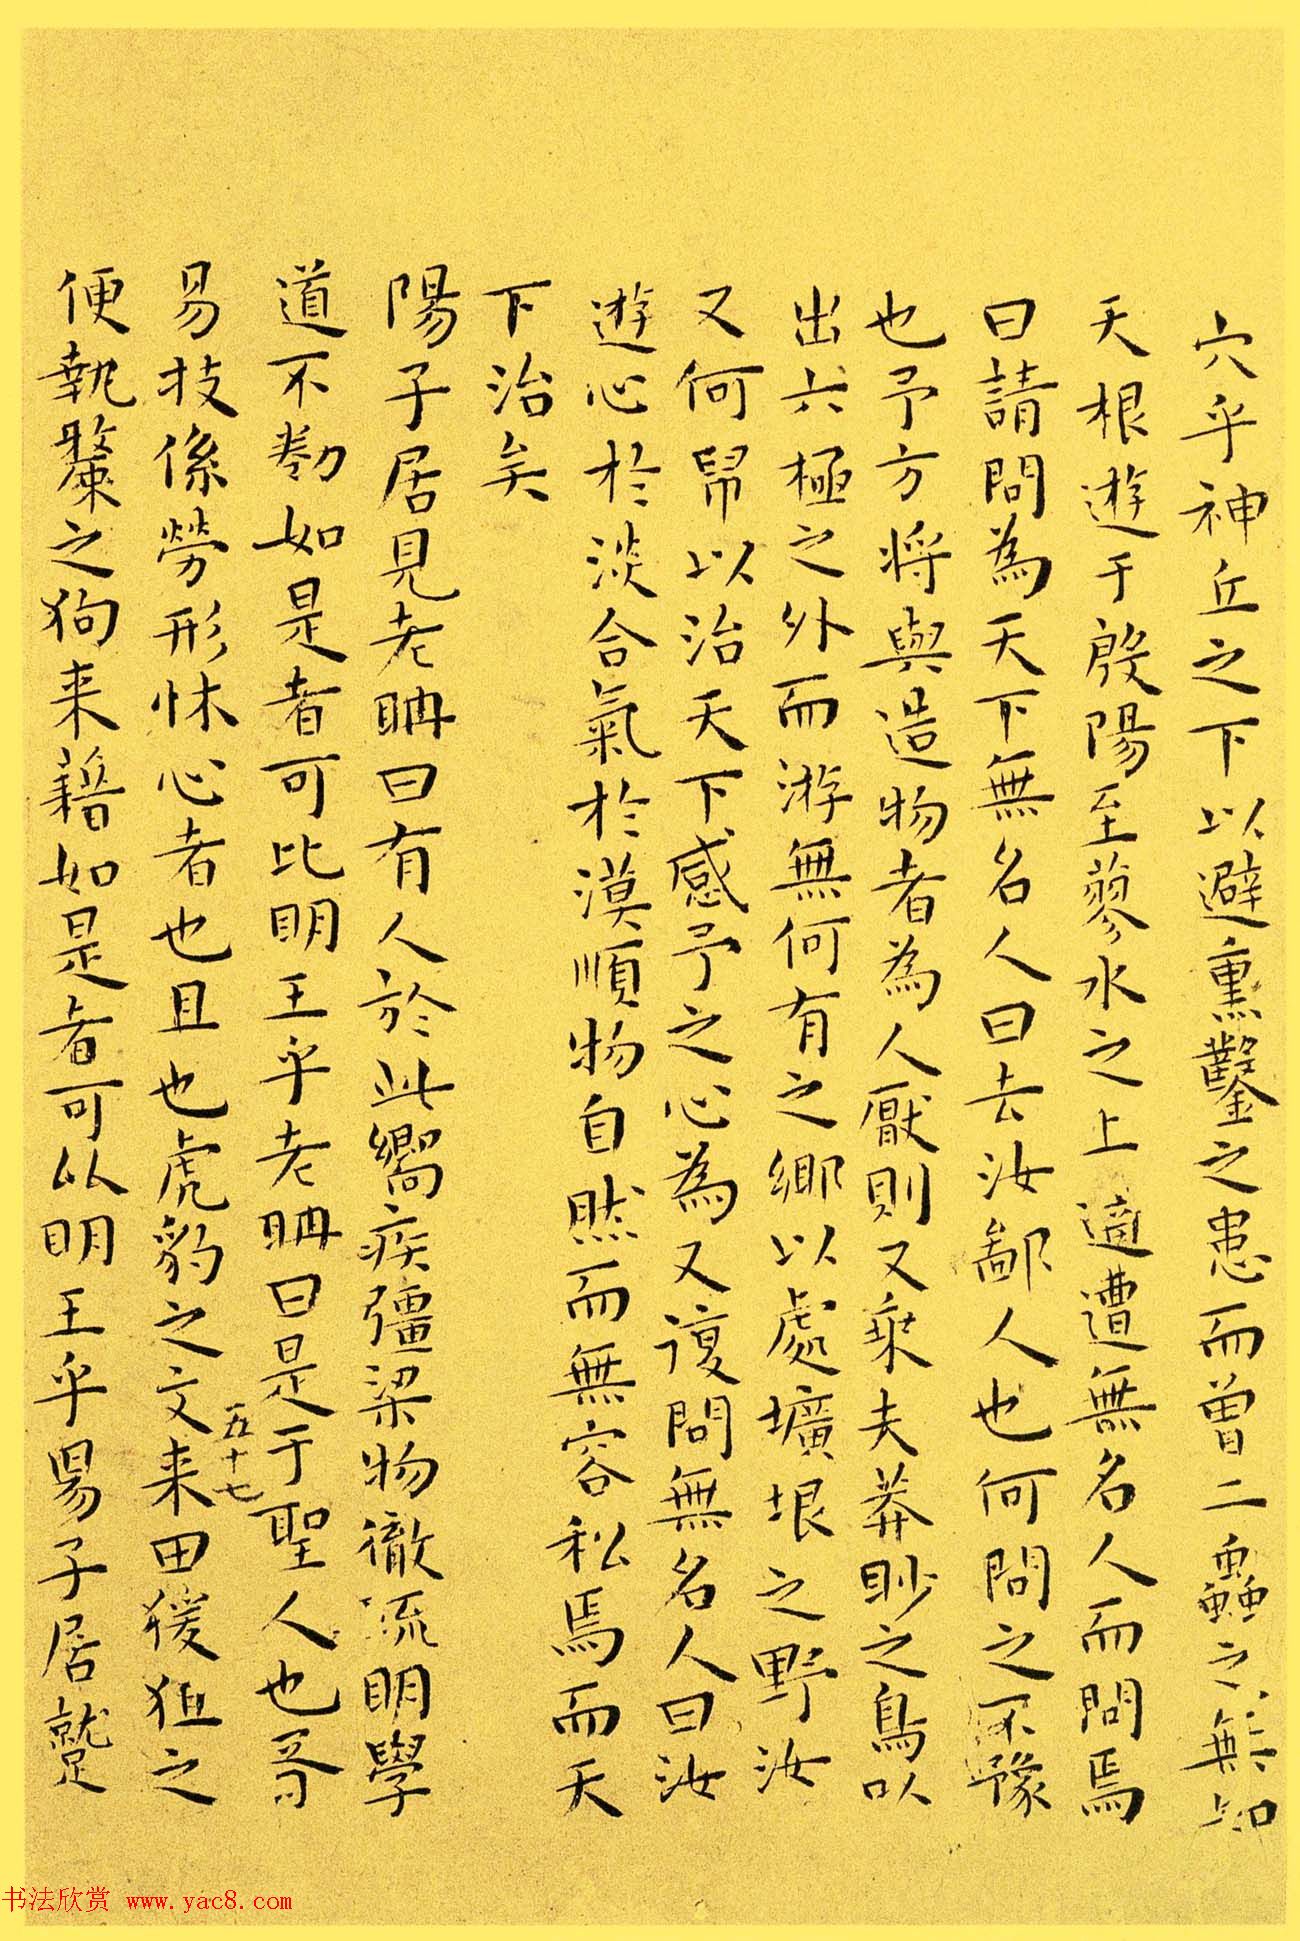 穴乎神丘之下以避熏鑿之患而曾二蟲之無知
天根遊于殷陽至蓼水之上適遭無名人而問焉
曰請問為天下無名人曰去汝鄙人也何問之不豫
也予方將與造物者為人厭則又乘夫莽眇之鳥以
出六極之外而游無何有之鄉以處壙垠之野汝
又何帠以治天下感予之心為又復問無名人曰汝
遊心於淡合氣於漠順物自然而無容私焉而天
下治矣
陽子居見老聃曰有人於此嚮疾彊梁物徹流明學
道不勌如是者可比明王乎老聃曰是于聖人也胥
易技係勞形怵心者也且也虎豹之文来田猨狙之
便執斄之狗来藉如是者可以明王乎陽子居蹵
五十七
书法欣赏 www.yac8.com